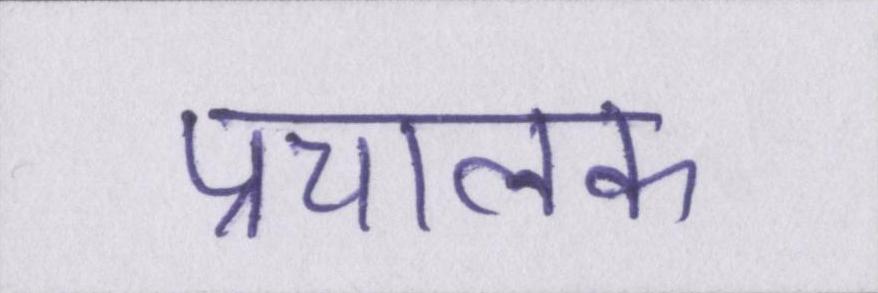 प्रचालक